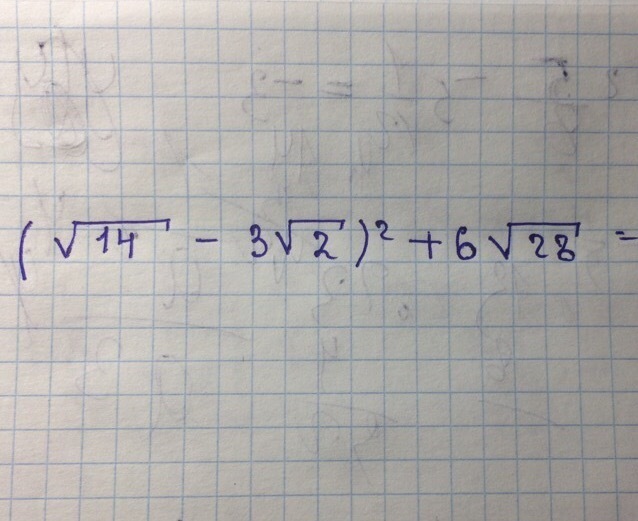 (√14 - 3√2)² + 6√28 =